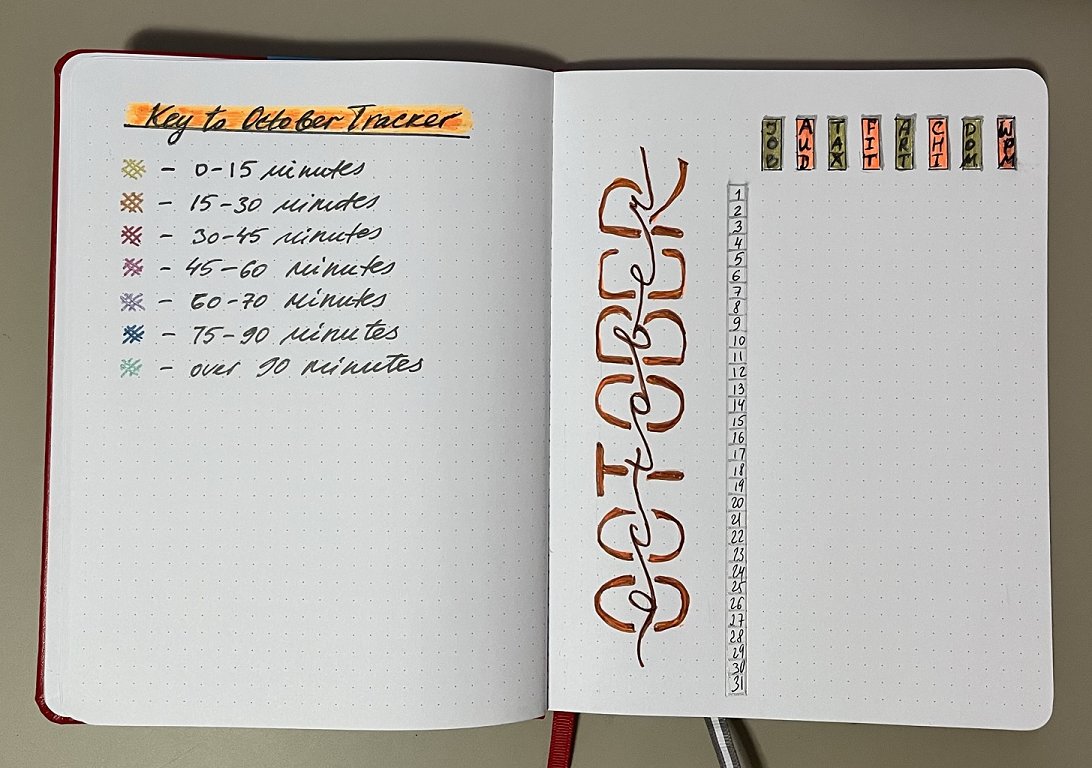 Key to October Tracker
- 0-15 minutes
- 15-30 minutes
- 30-45 minutes
- 45-60 minutes
- 60-70 minutes
- 75-90 minutes
- over 90 minutes
OCTOBER
october
JOB AUD TAX FIT ART CHI DOM WPM
1
2
3
4
5
6
7
8
9
10
11
12
13
14
15
16
17
18
19
20
21
22
23
24
25
26
27
28
29
30
31